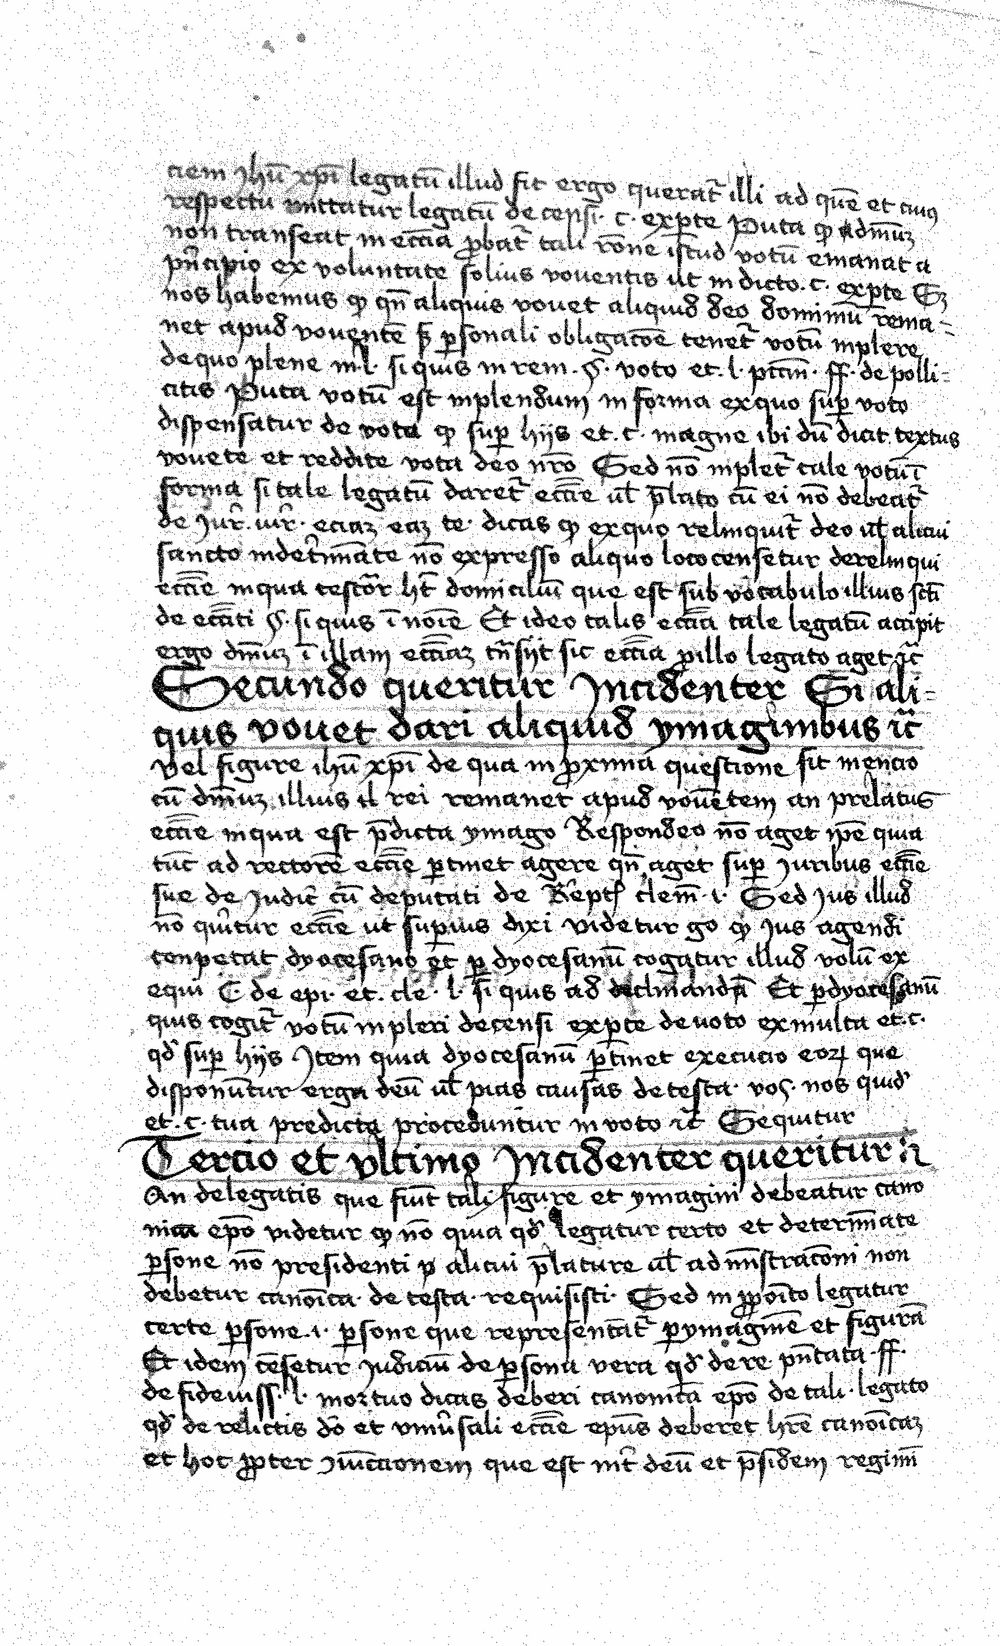 ciem Jhū xp̄i legatū illud fit ergo querat᷑ illi ad quē et cuiꝰ
respectu mittatur legatū de censi· c· exp̱te Puta ꝙ ad dm̄ū
non transeat in ecc̄ia p̱bat᷑ tali rōne istud votū emanat a
pn̄cipio ex voluntate solius voventis ut in dicto· c· exp̱te Et
nos habemus ꝙ qn̄ aliquis vovet aliquid deo dominiū rema⸗
net apud voventē ꝑsonali obligacōe tenet᷑ votū inplere
de quo plene in· l· si quis in rem· §· voto et· l· pctān̄· ff· de polli⸗
citis Puta votū est inplendum in forma ex quo suꝑ voto
dispensatur de vota ꝙ suꝑ hijs et· c· magne ibi dū dicit textus
vovete et reddite vota deo nrō Sed nō inplet᷑ tale votū ī
forma si tale legatū daret᷑ ecc̄ie ul̄ p̄lato cū ei nō debeat᷑
de Jur̄· iur̄· eciaꝫ eaꝫ te· dicas ꝙ ex quo relinquit᷑ deo ul̄ alicui
sancto indet̄mīate nō expresso aliquo loco censetur derelinqui
ecc̄ie in qua testor̄ hēt domiciliū que est sub vocabulo illius sc̄ti
de ecc̄iti §· si quis ī noīe Et ideo talis ecc̄ia tale legatū accipit
ergo dm̄iūꝫ ī illam ecc̄iaꝫ tn̄siit sic ecc̄ia ꝓ illo legato aget ⁊c̄
Secundo queritur Incidenter Si ali⸗
quis vovet dari aliquid ymaginibus ⁊c̄
Vel figure ihū xp̄i de qua in ꝓxima questione fit mencio
cū dm̄iuꝫ illius rei remanet apud vovētem an prelatus
ecc̄ie in qua est p̄dicta ymago Respondeo nō aget ip̄e quia
tūc ad rectorē ecc̄ie ꝑtinet agere qn̄ aget suꝑ Juribus ecc̄ie
sue de Judic̄ cū deputati de Re̅pt̄ clem̄· i· Sed Jus illud
nō q̄ritur ecc̄ie ut suꝑius dixi videtur go ꝙ Jus agendi
conpetat dyocesano et ꝑ dyocesanū cogatur illud volū ex
equi C de epi· et· cle· l· si quis ad declinandā Et ꝑ dyocesanū
quis cogit᷑ votū inpleri de censi exꝑte de voto ex multa et· c·
qd̄ suꝑ hijs Item quia dyocesanū ꝑtinet execucio eoꝝ que
disponūtur erga deū ul̄ pias causas de testa· vos· nos quid᷑
et· c· tua predicta proceduntur in voto ⁊c̄ Sequitur
Tercio et vltimo Incidenter queritur
An delegatis que fiūt tali figure et ymagini debeatur cano
nica epō videtur ꝙ nō quia qd̄ legatur certo et det̄mīate
ꝑsone nō presidenti ꝑ alicui p̄lature ul̄ adm̄nstracōni non
debetur canoīca· de testa· requisisti· Sed in ꝓpoīto legatur
certe ꝑsone· i· ꝑsone que represent̄at᷑ ꝑ ymaginē et figurā
Et idem cēsetur Judiciū de ꝑsona vera qd̄ de re pn̄tata· ff·
de fideiuss· l· mortuo dicas deberi canonicā epō de tali· legato
qd̄ de relictis dō et vniv̄sali ecc̄ie ep̄us deberet hr̄e canoīcaꝫ
et hoc ꝓpter iūictionem que est int̄ deū et p̄sidem regimī